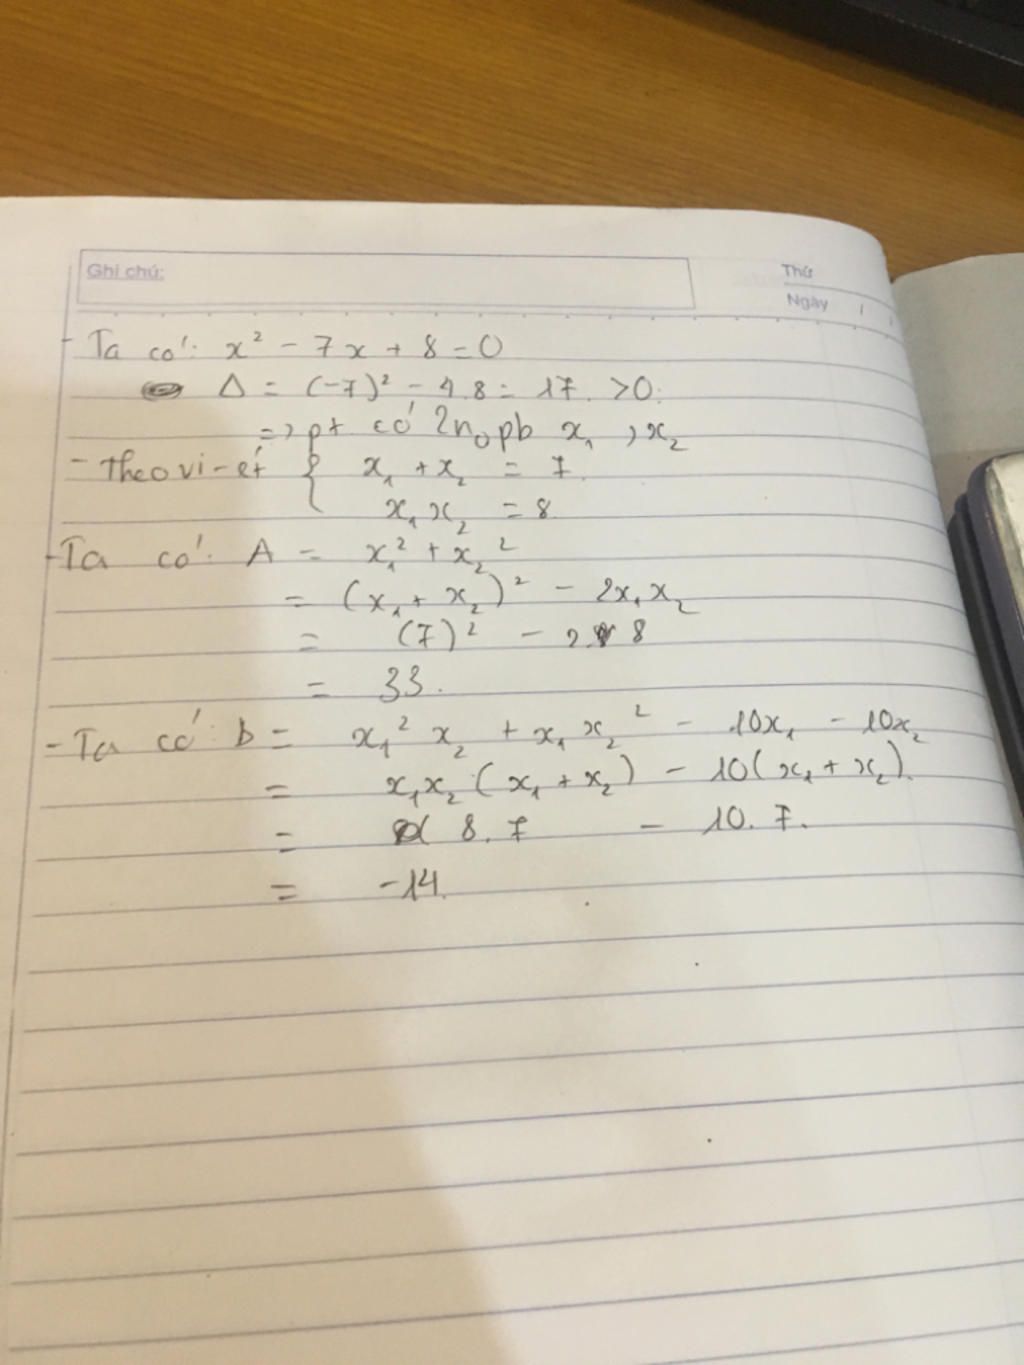 Ghi chú:
Thứ
Ngày / /
- Ta có: x² - 7x + 8 = 0
Δ = (-7)² - 4.8 = 17 > 0.
=> pt có 2n₀pb x₁, x₂
- Theo vi-ét { x₁ + x₂ = 7
x₁x₂ = 8
- Ta có: A = x₁² + x₂²
= (x₁ + x₂)² - 2x₁x₂
= (7)² - 2 8
= 33.
- Ta có: b = x₁²x₂ + x₁x₂² - 10x₁ - 10x₂
= x₁x₂(x₁ + x₂) - 10(x₁ + x₂).
= 8.7 - 10.7.
= -14.